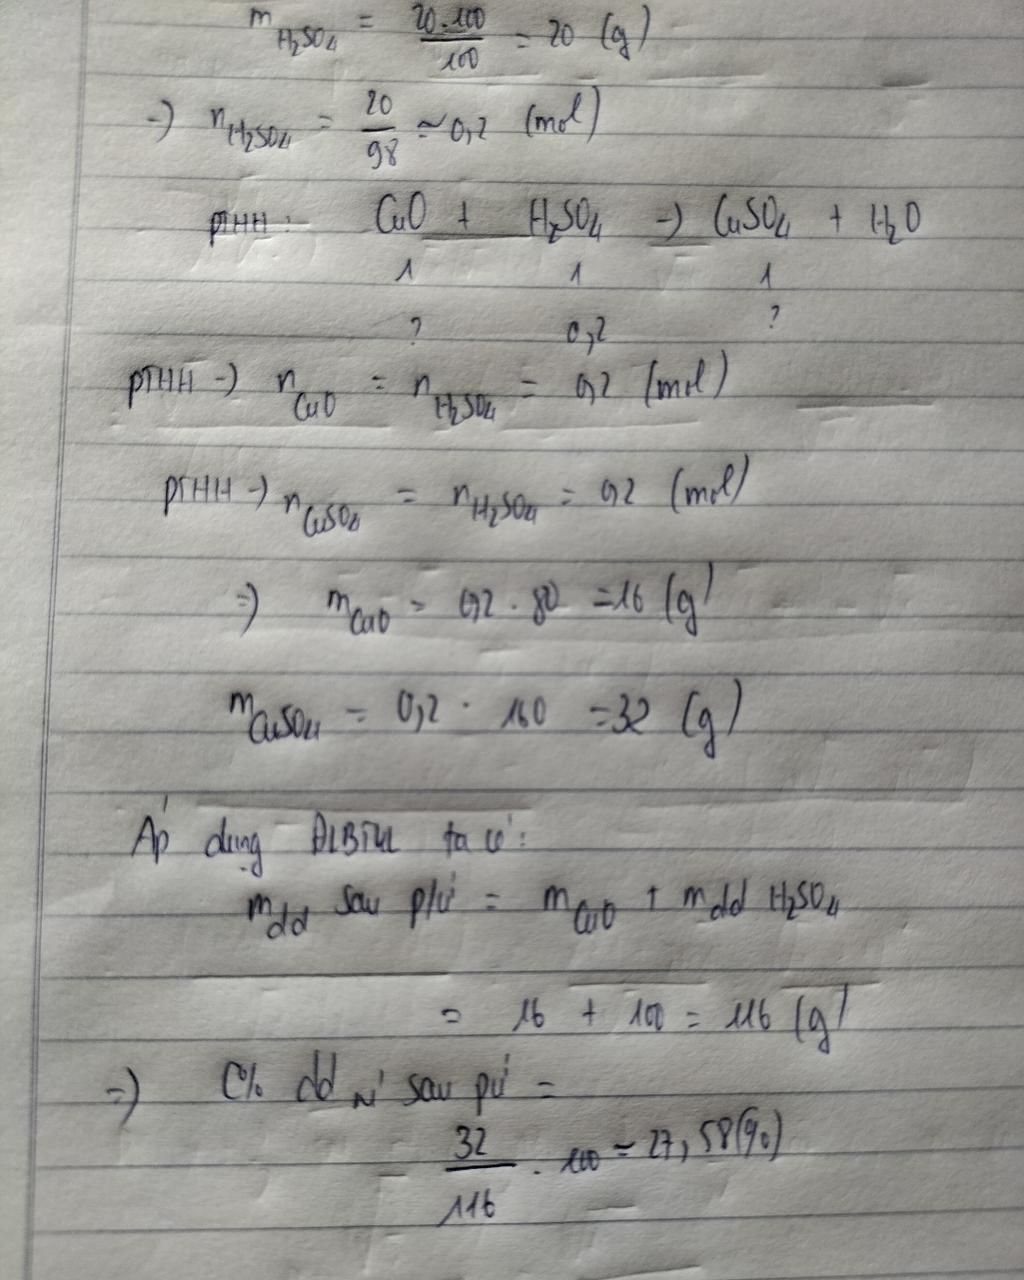 m H₂SO₄ = 20.100/100 = 20 (g)
→) n H₂SO₄ = 20/98 ≈ 0,2 (mol)
PTHH : CuO + H₂SO₄ → CuSO₄ + H₂O
1 1 1
? 0,2 ?
PTHH → n CuO = n H₂SO₄ = 0,2 (mol)
PTHH → n CuSO₄ = n H₂SO₄ = 0,2 (mol)
=) m CuO = 0,2 . 80 = 16 (g)
m CuSO₄ = 0,2 . 160 = 32 (g)
Áp dụng ĐLBTKL ta có :
m dd sau p/ứ = m CuO + m dd H₂SO₄
= 16 + 100 = 116 (g)
=) C% dd sau pứ =
32/116 . 100 = 27,58(%)